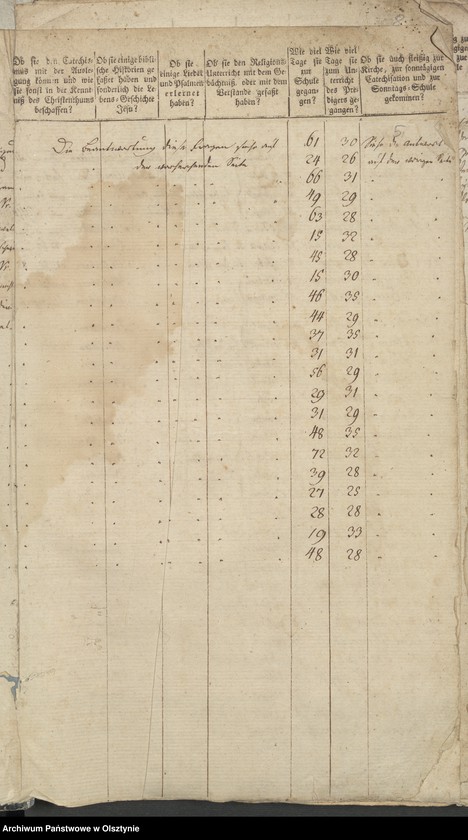 Ob sie den Catechis-
mus mit der Ausle-
gung können und wie
sie sonst in der Kennt-
niß des Christenthums
beschaffen?
Ob sie einige bibli-
sche Historien ge-
fasset haben und
sonderlich die Le-
bens-Geschichte
Jesu?
Ob sie
einige Lieder
und Psalmen
erlernet
haben?
Ob sie den Religions-
Unterricht mit dem Ge-
dächtniß, oder mit dem
Verstande gefaßt
haben?
Wie viel
Tage sie
zur
Schule
gegan-
gen?
Wie viel
Tage sie
zum Un-
terricht
des Pre-
digers ge-
gangen?
Ob sie auch fleißig zur
Kirche, zur sonntägigen
Catechisation und zur
Sonntags-Schule
gekommen?
Die Beantwortung dieser Fragen siehe auf 61 30 Siehe die Antwort
der vorhergehenden Seite 24 26 auf der vorigen Seite
66 31
49 29
63 28
15 32
45 28
15 30
46 35
44 29
37 35
31 31
56 29
29 31
31 29
48 35
72 32
39 28
27 25
28 28
19 33
48 28
Archiwum Państwowe w Olsztynie